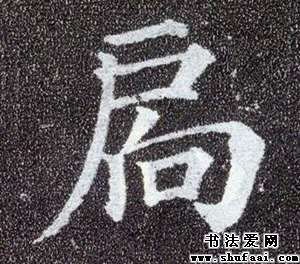 扃
书法爱网
www.shufaai.com